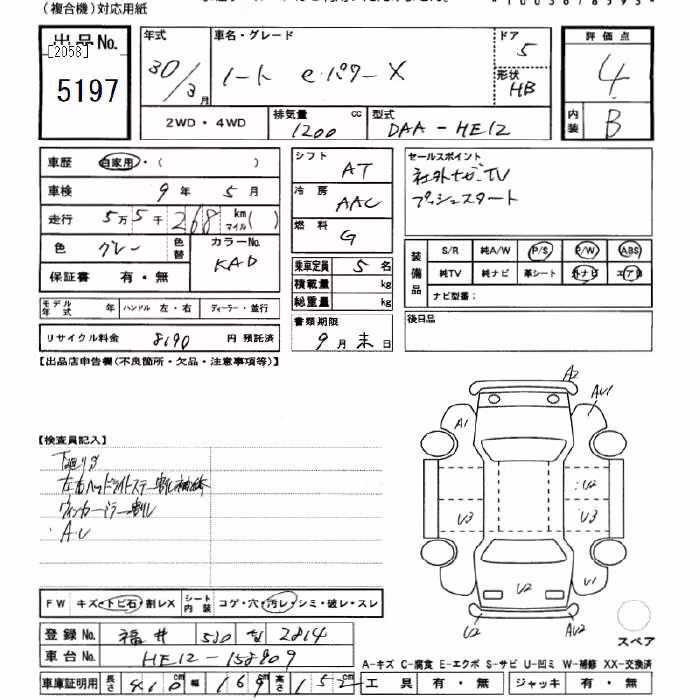 (複合機)対応用紙
出品No. [2058] 5197
年式 30/3月
車名・グレード ノート e・パワー X
ドア 5
形状 HB
評価点 4
内装 B
2WD・4WD
排気量 1200 cc
型式 DAA-HE12
車歴 自家用・( )
車検 9年 5月
走行 5万5千268 km マイル( )
色 グレー 色替
カラーNo. KAD
保証書 有・無
モデル年式 年 ハンドル 左・右 ディーラー・並行
リサイクル料金 8190 円 預託済
シフト AT
冷房 AAC
燃料 G
乗車定員 5名
積載量 kg
総重量 kg
書類期限 9月末日
セールスポイント
社外ナビTV
プッシュスタート
装備品 S/R 純A/W P/S P/W ABS
純TV 純ナビ 革シート 外ナビ エアB
ナビ型番:
後日品
【出品店申告欄(不良箇所・欠品・注意事項等)】
【検査員記入】
下廻りS
ウィンカーミラー割れ
A・U
A2
AU1
A1
U2
U3
U3
U2
U1
U2
AU2
スペア
FW キズ・トビ石・割レX シート内装 コゲ・穴・汚レ・シミ・破レ・スレ
登録No. 福井 530 2814
車台No. HE12-158909
車庫証明用 長さ 410cm 幅 169cm 高さ 152
A-キズ C-腐食 E-エクボ S-サビ U-凹ミ W-補修 XX-交換済
工具 有・無 ジャッキ 有・無